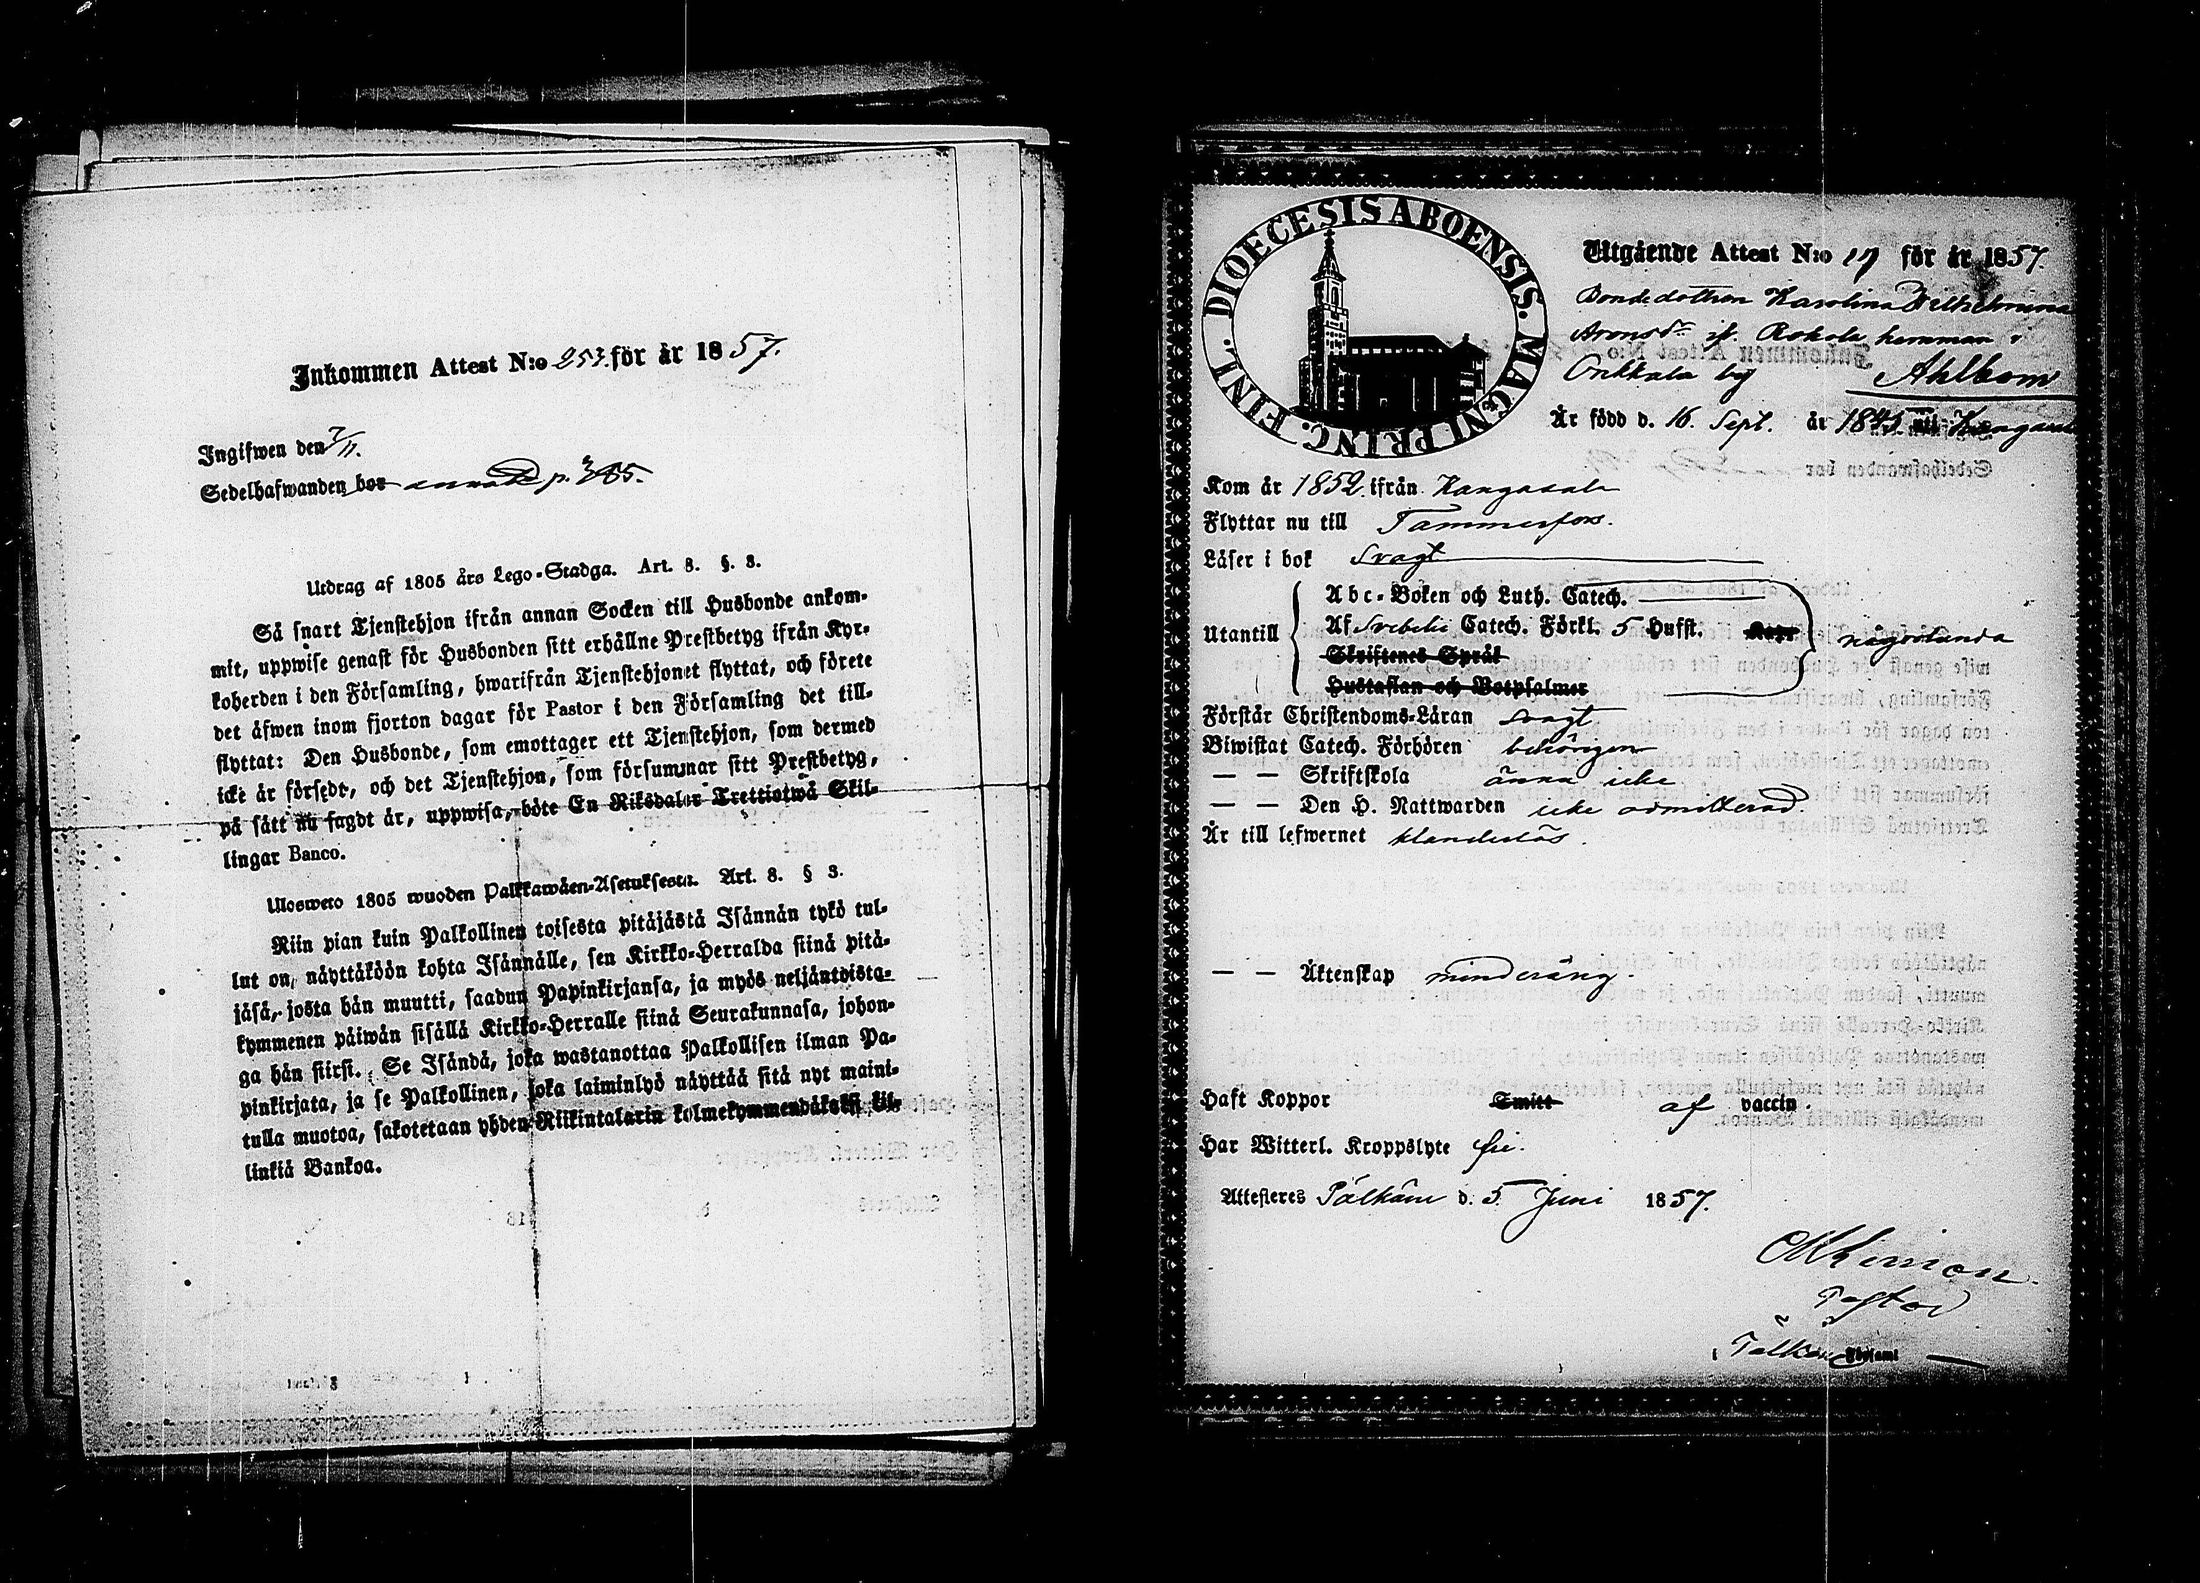 Inkommen Attest N:o 253. för år 1857.
Ingifwen den 7/11.
Sedelhafwanden bor annat p. 365.
Utdrag af 1805 års Lego-Stadga. Art. 8. §. 3.
Så snart Tjenstehjon ifrån annan Socken till Husbonde ankom-
mit, uppwise genast för Husbonden sitt erhållne Prestbetyg ifrån Kyr-
koherden i den Församling, hwarifrån Tjenstehjonet flyttat, och förete
det äfwen inom fjorton dagar för Pastor i den Församling det till-
flyttat: Den Husbonde, som emottager ett Tjenstehjon, som dermed
icke är försedt, och det Tjenstehjon, som försummar sitt Prestbetyg,
på sätt nu sagdt är, uppwisa, böte En Riksdaler Trettiotwå Skil-
lingar Banco.
Ulosweto 1805 wuoden Palkkawäen-Asetuksesta. Art. 8. § 3.
Niin pian kuin Palkollinen toisesta pitäjästä Isännän tykö tul-
lut on, näyttäköön kohta Isännälle, sen Kirkko-Herralda siinä pitä-
jäsä, josta hän muutti, saadun Papinkirjansa, ja myös neljäntoista-
kymmenen päiwän sisällä Kirkko-Herralle siinä Seurakunnasa, johon-
ga hän siirsi. Se Isändä, joka wastanottaa Palkollisen ilman Pa-
pinkirjata, ja se Palkollinen, joka laiminlyö näyttää sitä nyt maini-
tulla muotoa, sakotetaan yhden Riikintalarin kolmekymmendäkaksi kil-
linkiä Bankoa.
DIOECESIS ABOENSIS. MAGNI PRINC. FINL.
Utgående Attest N:o 17 för år 1857.
Bondedottren Karolina Wilhelmina
Aronsdr if. Rokola hemman i
Onkkala by Ahlbom
Är född d. 16 Sept. år 1845 uti Kangasala
Kom år 1852 ifrån Kangasala
Flyttar nu till Tammerfors.
Läser i bok Svagt
Utantill
Abc-Boken och Luth. Catech.
Af Svebelii Catech. Förkl. 5 Hufst. någorlunda
Skriftenes Språk
Hustaflan och Botpsalmer
Förstår Christendoms-Läran svagt
Biwistat Catech. Förhören behörigen
— — Skriftskola ännu icke
— — Den H. Nattwarden icke admitterad.
Är till lefwernet klanderlös.
— — Äktenskap minderårig.
Haft Koppor Smitt af vaccin.
Har Witterl. Kroppslyte fri.
Attesteres Pälkäne d. 5 Juni 1857.
Pastor
i Pälkäne Församl